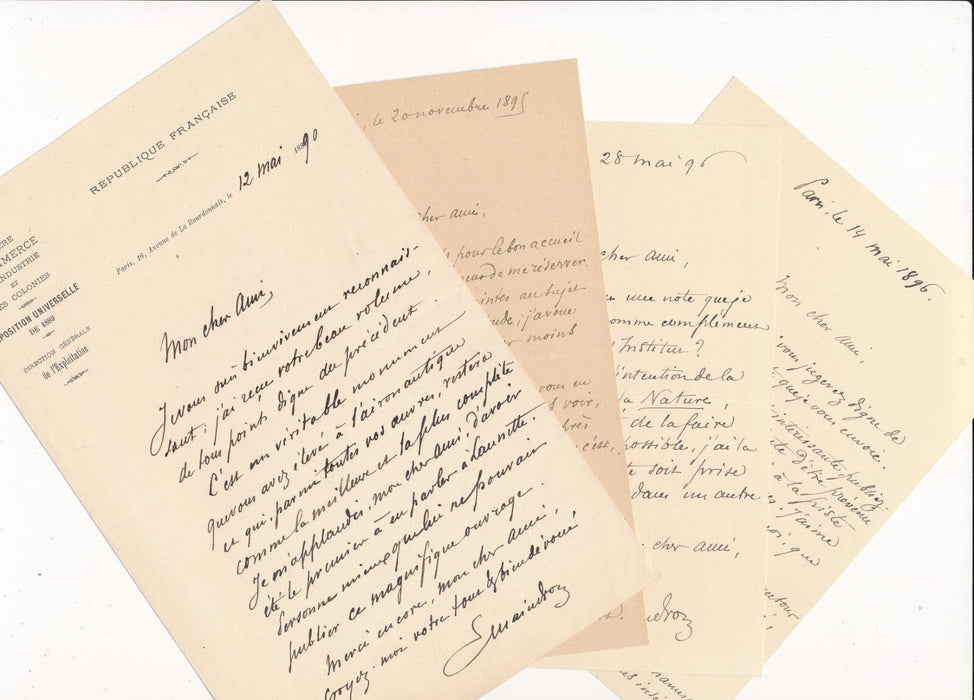 RÉPUBLIQUE FRANÇAISE
COMMERCE
INDUSTRIE
ET
COLONIES
EXPOSITION UNIVERSELLE
DE 1889
DIRECTION GÉNÉRALE
de l'Exploitation
Paris, 16, Avenue de La Bourdonnais, le 12 mai 90
Mon cher Ami,
Je vous suis bien vivement reconnais-
sant; j'ai reçu votre beau volume,
de tous points digne du précédent.
C'est un véritable monument
que vous avez élevé à l'airon antique
et qui, parmi toutes vos œuvres, restera
comme la meilleure et la plus complète
Je m'applaudis, mon cher ami, d'avoir
été le premier à en parler à Laussette.
Personne mieux que lui ne pouvait
publier ce magnifique ouvrage.
Merci encore, mon cher ami,
croyez-moi votre tout & bien dévoué,
Smaindron
, le 20 novembre 1895
cher ami,
pour le bon accueil
de me réserver
au sujet
; j'avoue
moins
vous en
voir,
28 mai 96
cher ami,
une note que je
comme complément
Institut ?
l'intention de la
la Nature,
de la faire
c'est, possible, j'ai la
soit prise
dans un autre
cher ami,
Paris, le 14 mai 1896.
Mon cher ami,
vous jugerez digne de
que je vous envoie.
intéressante, publiez-
d'être prévenu
à la piste
J'aime
que